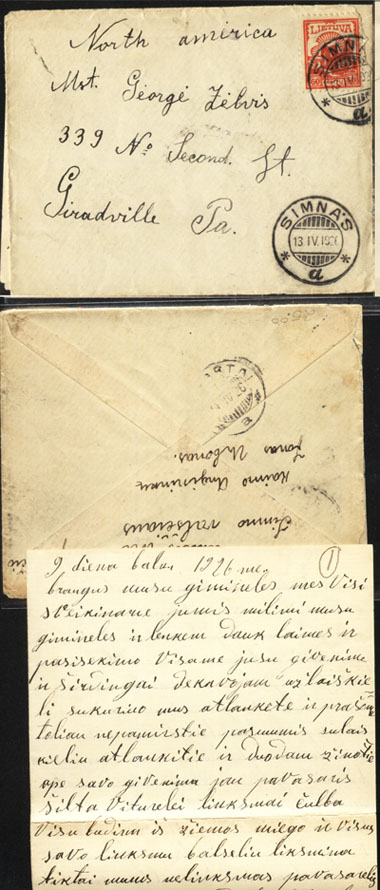 North america
LIETUVA
SIMNAS
Mst. George Zelvis
339 No Second. St.
Giradville Pa.
SIMNAS
13 IV. 1926
a
Simno valsčiaus
kaimo Angininkų
Jonas Urbonas.
9 diena balan 1926 me. 1
brangus musu gimineles mes Visi
sveikiname jumis milimi musu
gimineles ir lenkem dauk laimes ir
pasisekimo Visame jusu givenime
ir širdingai dekavojam už laiškie
li sukuriuo mus atlankete ir prašom
toliau nepamirstie pasmumis sulais
kieliu atlankitie ir duodam žinotie
ape savo givenima jau pavasaris
šilta Viturelei linksmai čulba
Visu budinu is ziemos miego ir Visus
savo linksmu balseliu linksmina
tiktai mums nelinksmas pavasarelis